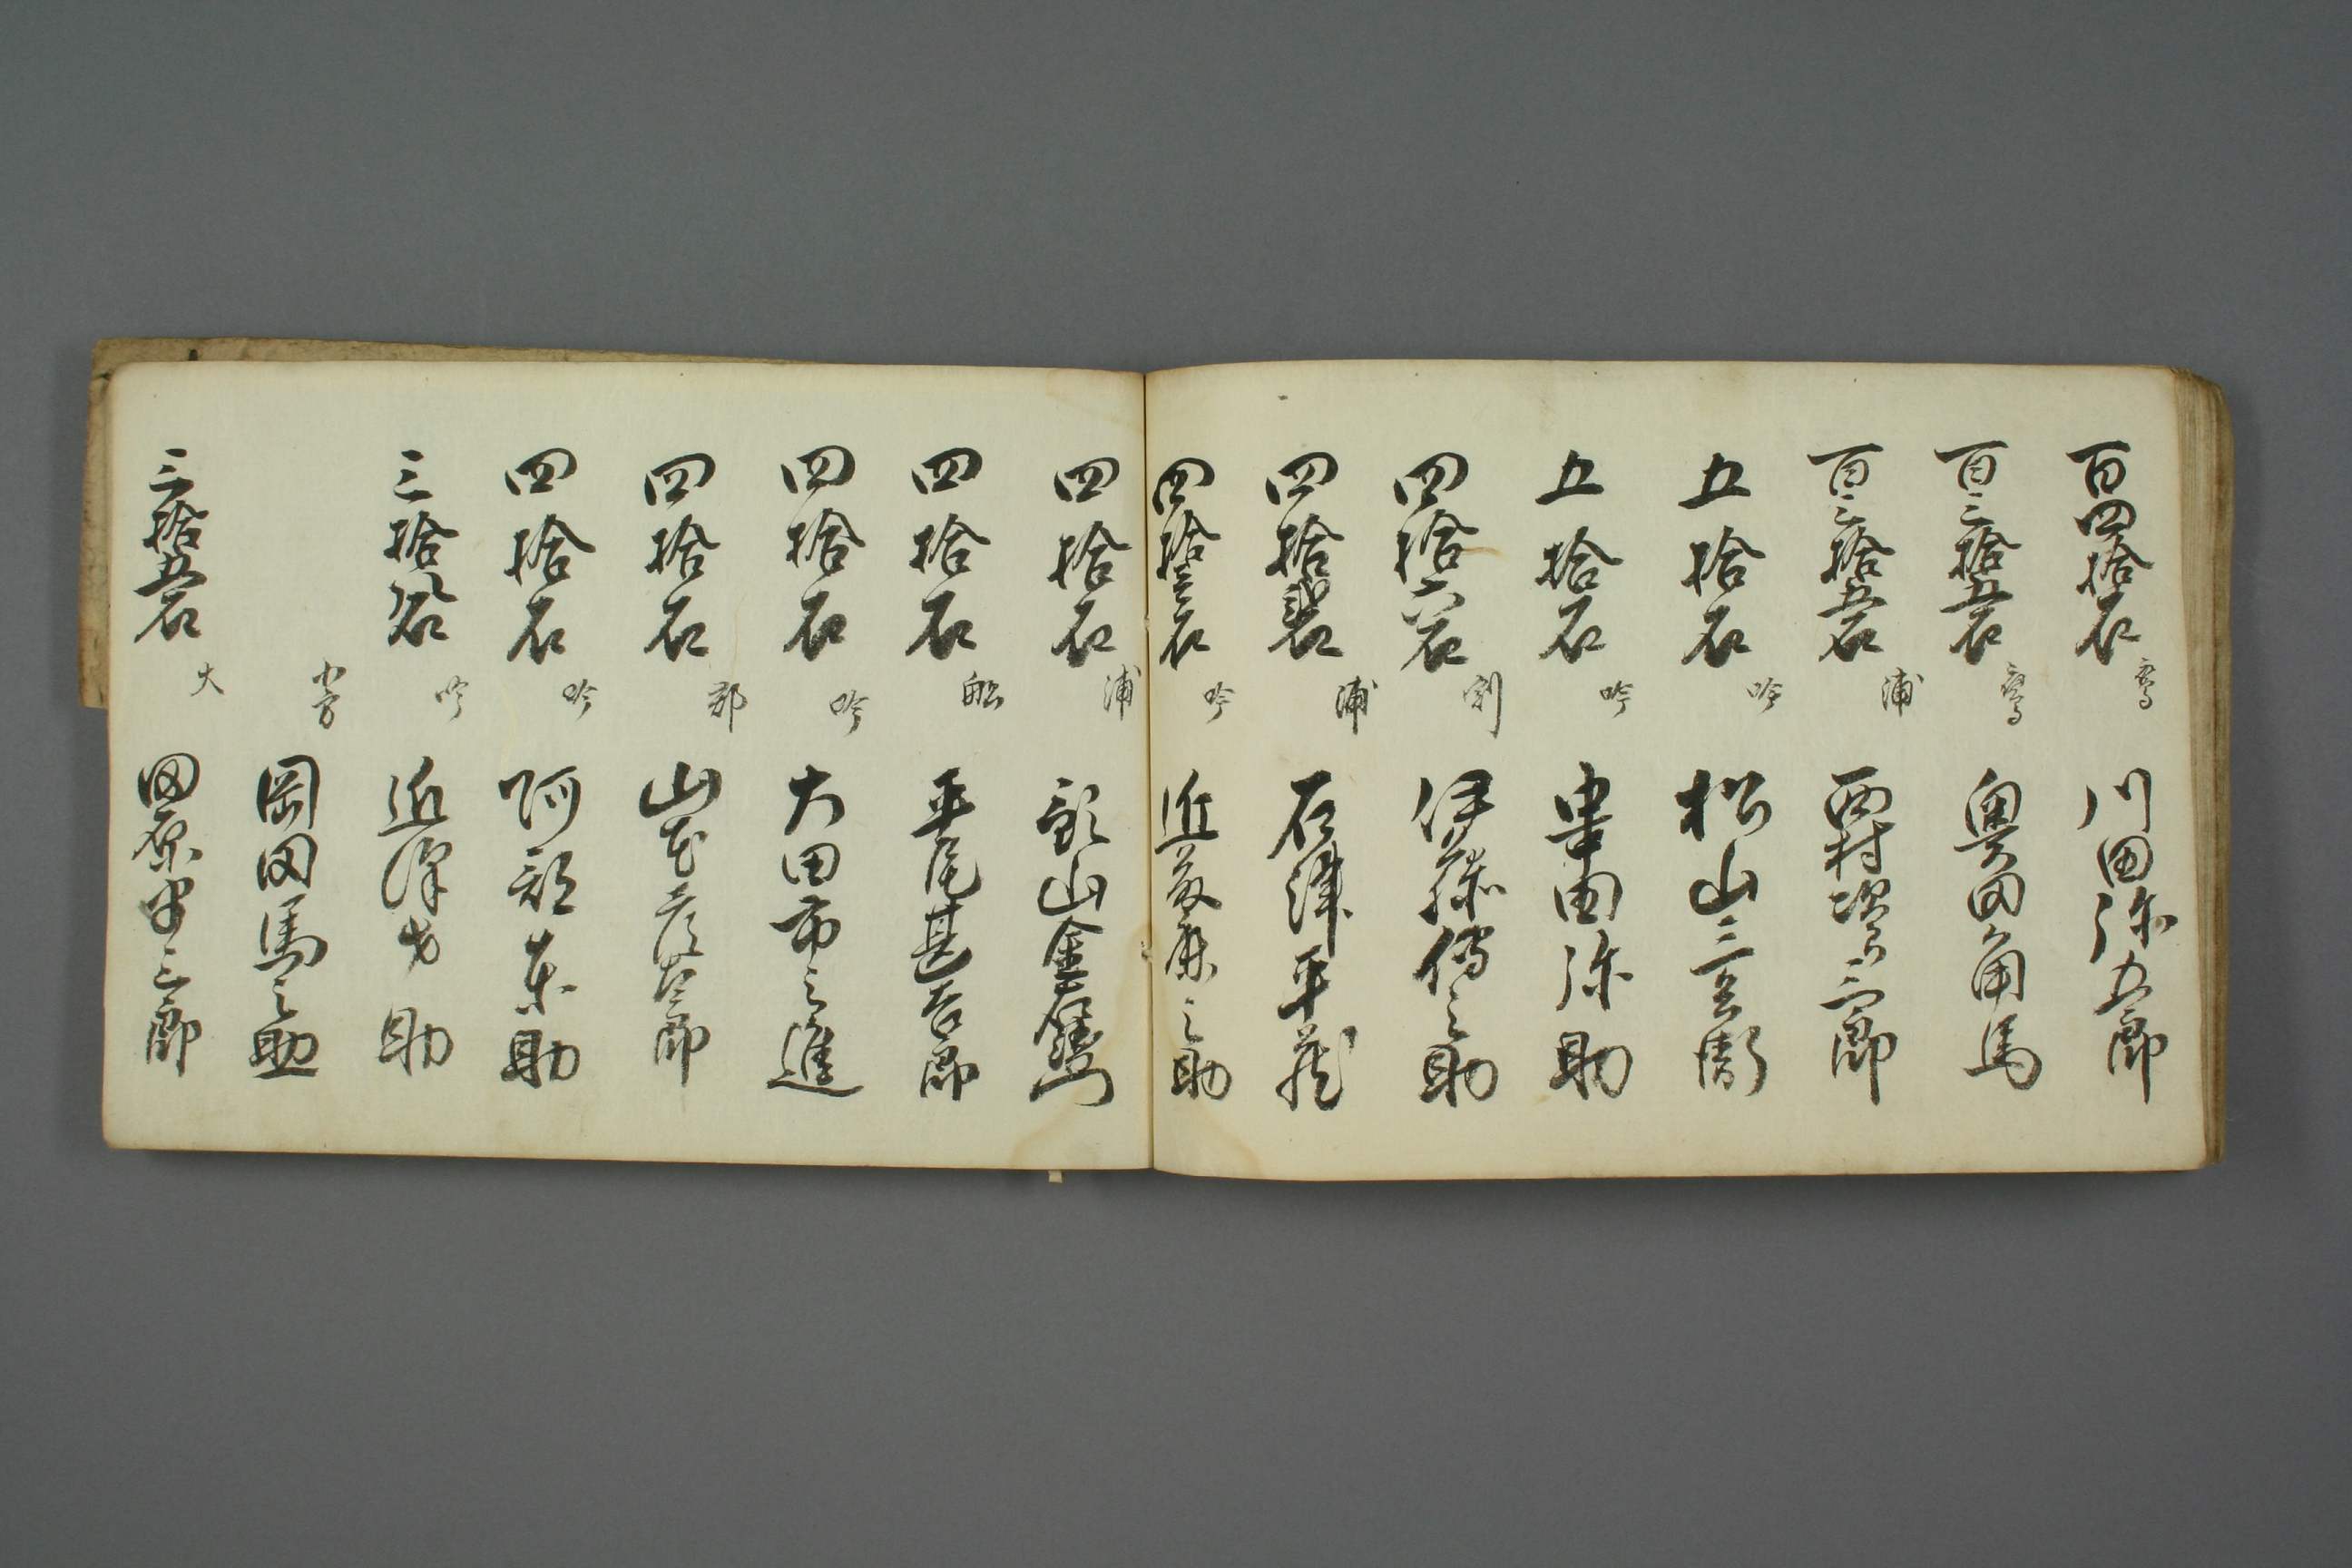 百四拾石 川田弥五郎
百三拾五石 奥田角馬
百三拾五石 浦 西村次郎三郎
五拾石 吟 松山三兵衛
五拾石 吟 串田弥助
四拾六石 別 伊藤傳之助
四拾弐石 浦 石津平蔵
四拾三石 吟 近藤庫之助
四拾石 浦 山金左衛門
四拾石 船 平尾甚五郎
四拾石 吟 大田市之進
四拾石 郡 山本彦三郎
四拾石 吟 阿部来助
三拾八石 吟 近澤才助
岡田馬之助
三拾五石 大 田原半三郎